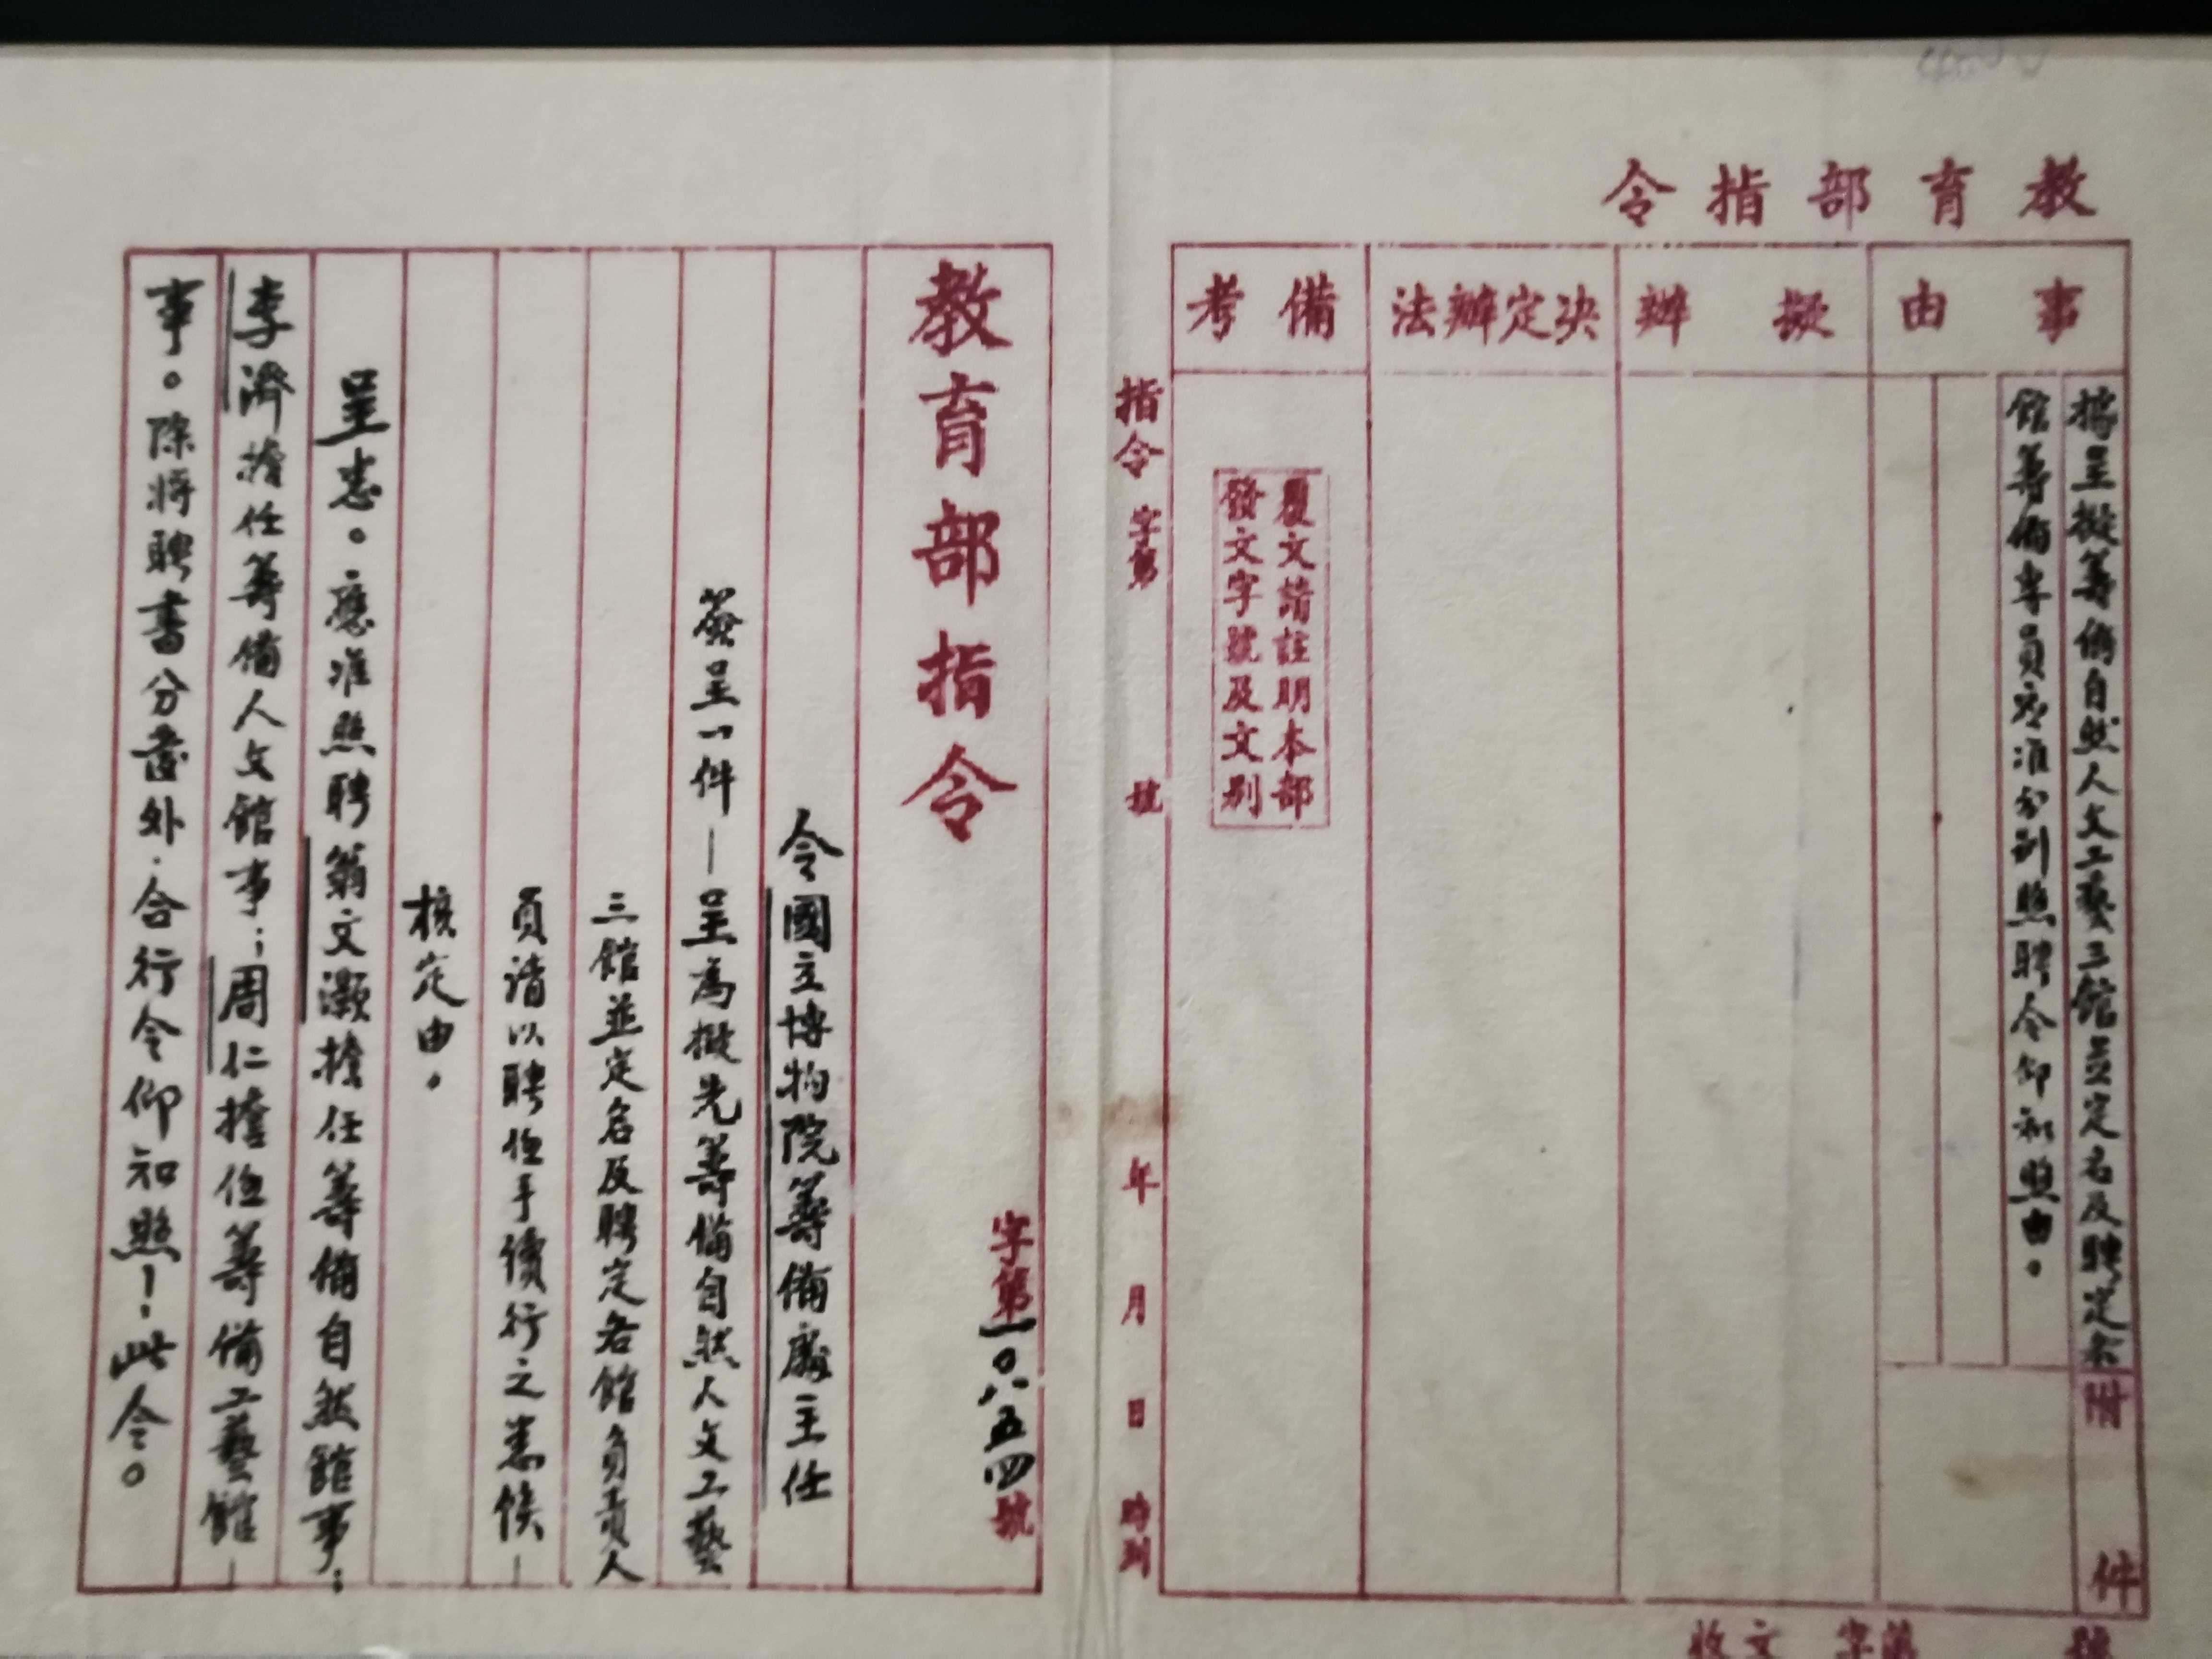 教育部指令
事由
據呈擬籌備自然人文工藝三館並定名及聘定各
館籌備專員應准分別照聘令仰知照由。
附件
擬辦
決定辦法
備考
覆文請註明本部
發文字號及文別
指令 字第 號 年 月 日 時到
收文 字第 號
教育部指令
字第一〇八五四號
令國立博物院籌備處主任
簽呈一件—呈為擬先籌備自然人文工藝
三館並定名及聘定各館負責人
員請以聘任手續行之悉候—
核定由。
呈悉。應准照聘翁文灝擔任籌備自然館事；
李濟擔任籌備人文館事；周仁擔任籌備工藝館—
事。除將聘書分發外，合行令仰知照！此令。